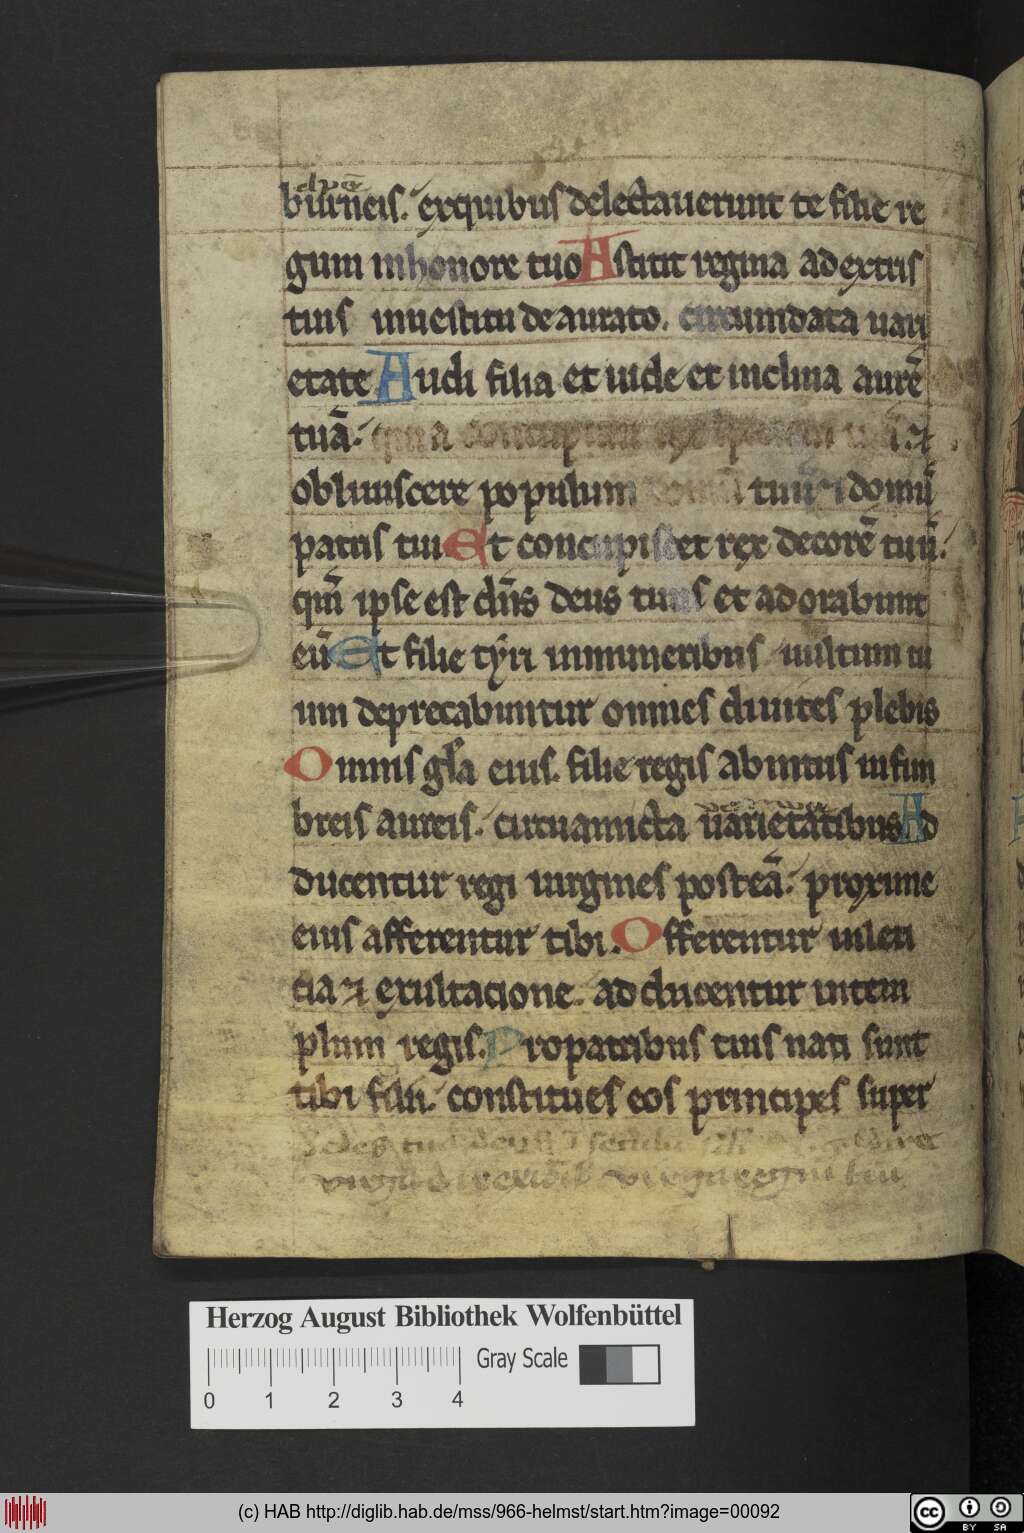 burneis. exquibus delectauerunt te filie re
gum inhonore tuo Astitit regina adextris
tuis inuestitu deaurato. circumdata uari
etate Audi filia et uide et inclina aurē
tuā.
obliuiscere populum tuū ⁊ domū
patris tui Et concupiscet rex decorē tuū.
qm̄ ipse est dn̄s deus tuus et adorabunt
eū Et filie tyri inmuneribus uultum tu
um deprecabuntur omnes diuites plebis
Omnis gl̄a eius. filie regis abintus infim
breis aureis. circuamicta uarietatibus Ad
ducentur regi uirgines posteā. proxime
eius afferentur tibi. Offerentur inleti
cia ⁊ exultacione. adducentur intem
plum regis. Propatribus tuis nati sunt
tibi filii. constitues eos principes super
sedes tua deus
uirga directiōis uirga regni tui
Herzog August Bibliothek Wolfenbüttel
Gray Scale
0 1 2 3 4
(c) HAB http://diglib.hab.de/mss/966-helmst/start.htm?image=00092
cc BY SA